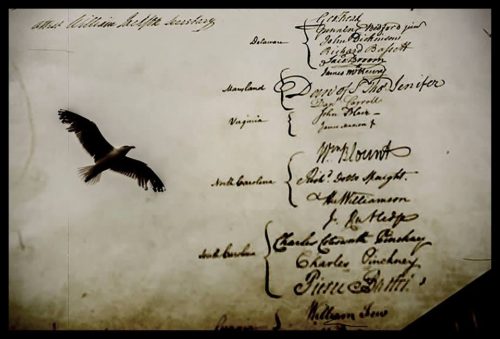 attest William Jackson Secretary
Geo: Read
Gunning Bedford jun
John Dickinson
Delaware
Richard Bassett
Jaco: Broom
James McHenry
Maryland
Dan of St Thos Jenifer
Danl Carroll
John Blair
Virginia
James Madison Jr
Wm Blount
North Carolina
Richd Dobbs Spaight.
Hu Williamson
J. Rutledge
Charles Cotesworth Pinckney
South Carolina
Charles Pinckney
Pierce Butler.
William Few
Georgia